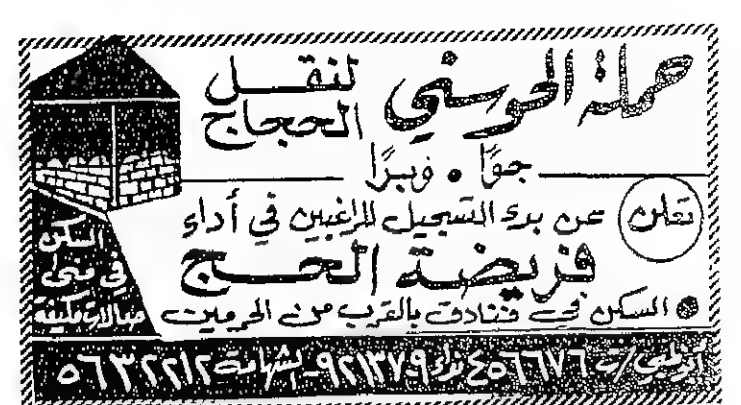 حملة الحوسني لنقل الحجاج
جوًا • وبرًا
تعلن عن بدء التسجيل للراغبين في أداء
فريضة الحج
• السكن في فنادق بالقرب من الحرمين
السكن
في منى
صالات مكيفة
أبوظبي / ت ٤٥٦٦٧٦ نداء ٩٢١٣٧٩ - الشهامة ٥٦٣٢٢١٢